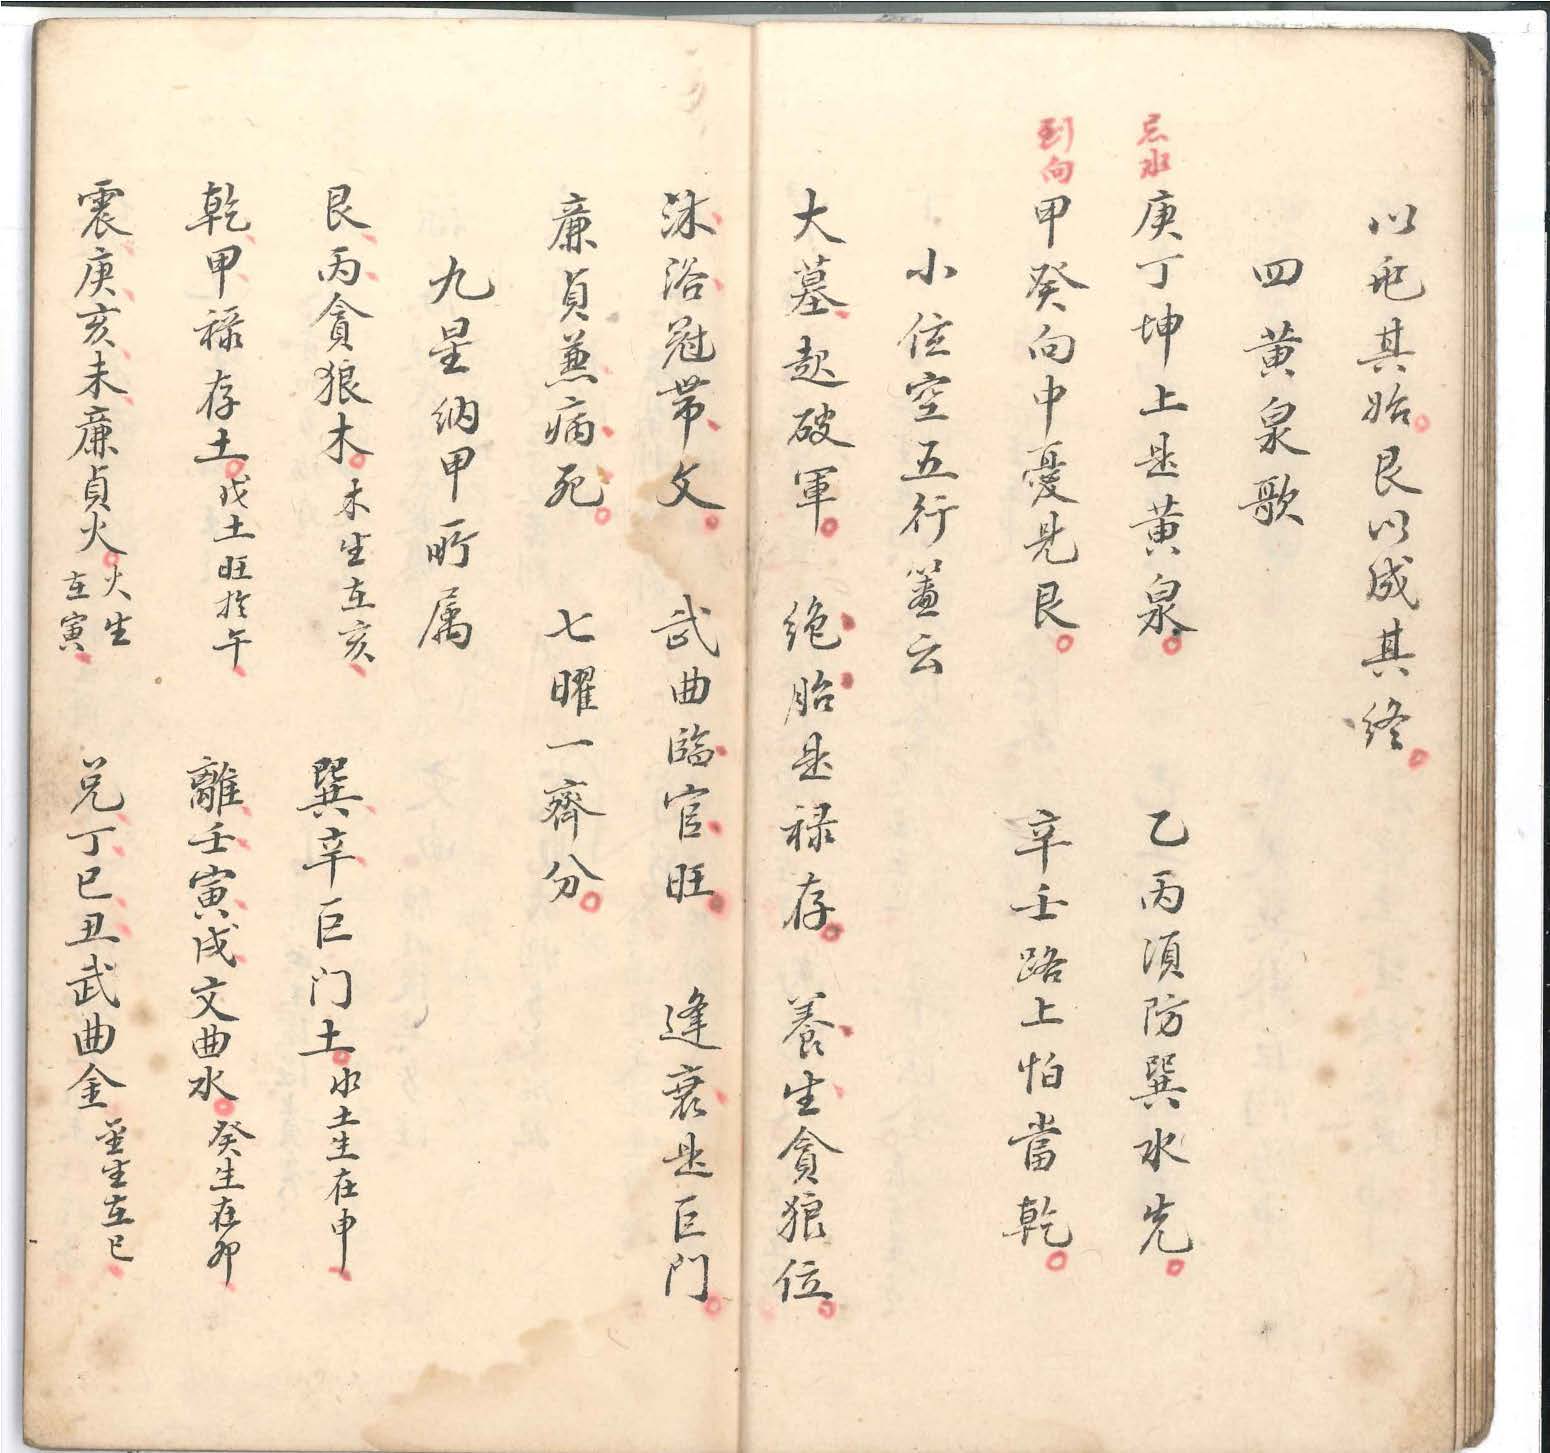 以兜其始艮以成其終
四黄泉歌
忌水庚丁坤上是黄泉 乙丙須防巽水先
到向甲癸向中憂見艮 辛壬路上怕當乾
小位空五行云
大墓起破軍 絶胎是禄存 養生貪狼位
沐浴冠帯文 武曲臨官旺 逢衰是巨门
廉貞兼病死 七曜一齊分
九星納甲所属
艮丙貪狼木 木生在亥 巽辛巨门土 水土生在申
乾甲禄存土 戊土旺於午 離壬寅戌文曲水 癸生在卯
震庚亥未廉貞火 火生在寅 兌丁巳丑武曲金 金生在巳